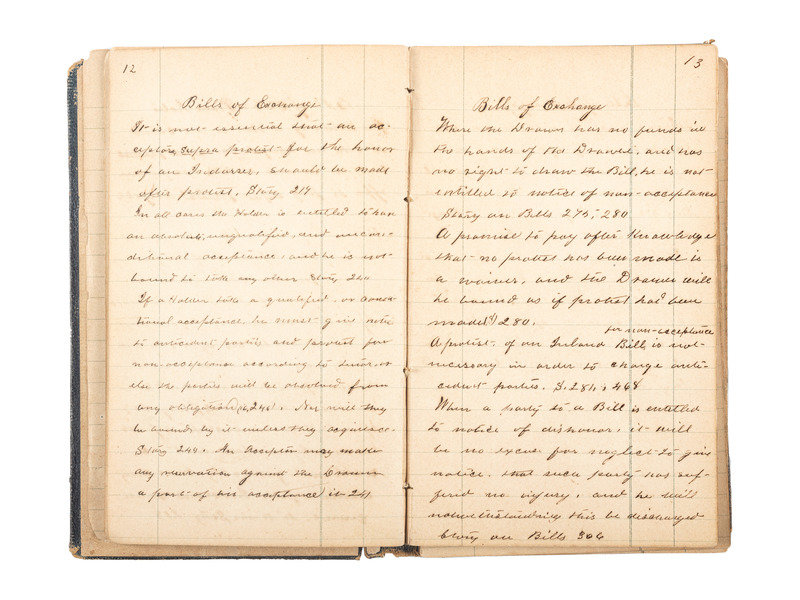 12
Bills of Exchange
It is not essential that an ac-
ceptor, supra protest for the honor
of an Indorser, should be made
after protest. Story 217
In all cases the Holder is entitled to have
an absolute, unqualified, and uncon-
ditional acceptance, and he is not
bound to take any other Story 240
If a Holder take a qualified, or condi-
tional acceptance, he must give note
to antecedent parties and protest for
non-acceptance according to tenor, or
else the parties will be absolved from
any obligation 240. Nor will they
be bound by it unless they acquiesce.
Story 240. An Acceptor may make
any reservation against the Drawer
a part of his acceptance 241
13
Bills of Exchange
Where the Drawer has no funds in
the hands of the Drawee, and has
no right to draw the Bill, he is not
entitled to notice of non-acceptance
Story on Bills 275, 280
A promise to pay after knowledge
that no protest has been made is
a waiver, and the Drawer will
be bound as if protest had been
made 280.
for non-acceptance
A protest of an Inland Bill is not
necessary in order to charge ante-
cedent parties. S. 281, 468
When a party to a Bill is entitled
to notice of dishonor, it will
be no excuse for neglect to give
notice, that such party has suf-
fered no injury, and he will
notwithstanding this be discharged
Story on Bills 306